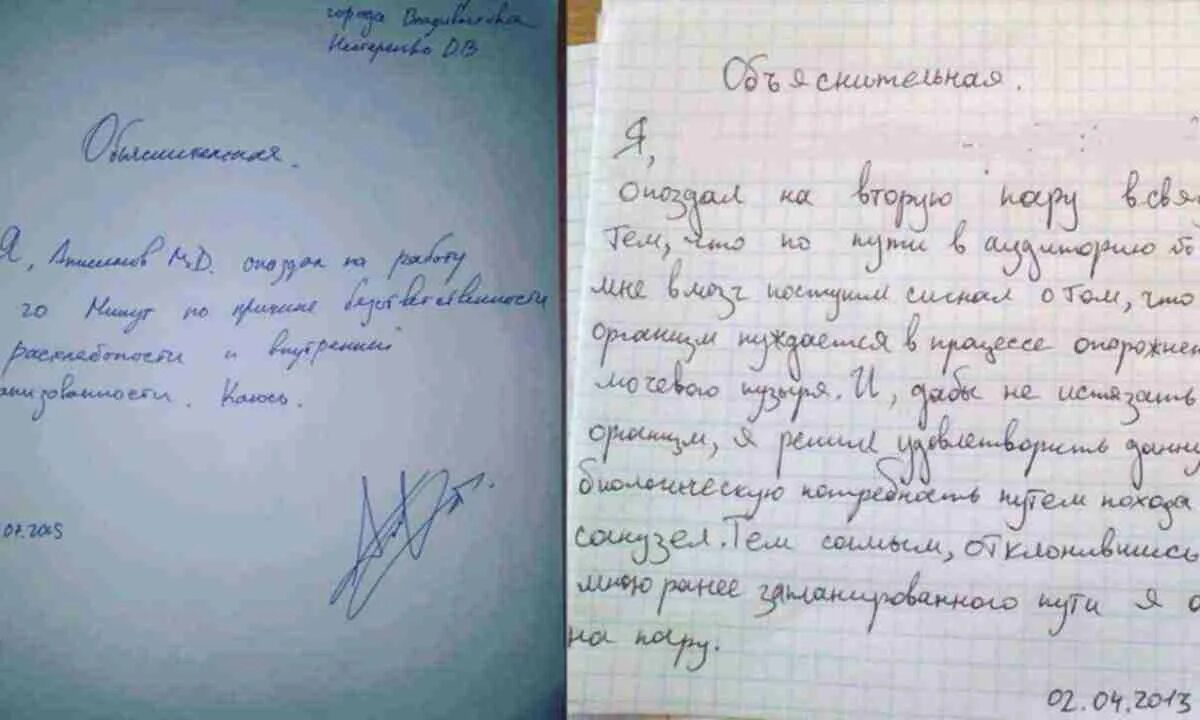 города Владивостока
Нестеренко Д.В
Объяснительная.
Я, М.Д. опоздал на работу
20 минут по причине безответственности
расхлебоности и внутренней
анизованности. Каюсь.
07.2015
Объяснительная.
Я,
опоздал на вторую пару в свя
тем, что по пути в аудиторию
мне в мозг поступил сигнал о том, что
организм нуждается в процессе опорожнен
мочевого пузыря. И, дабы не истязать
организм, я решил удовлетворить данну
биологическую потребность путем похода
санузел. Тем самым, отклонившись
мною ранее запланированного пути я о
на пару.
02.04.2013